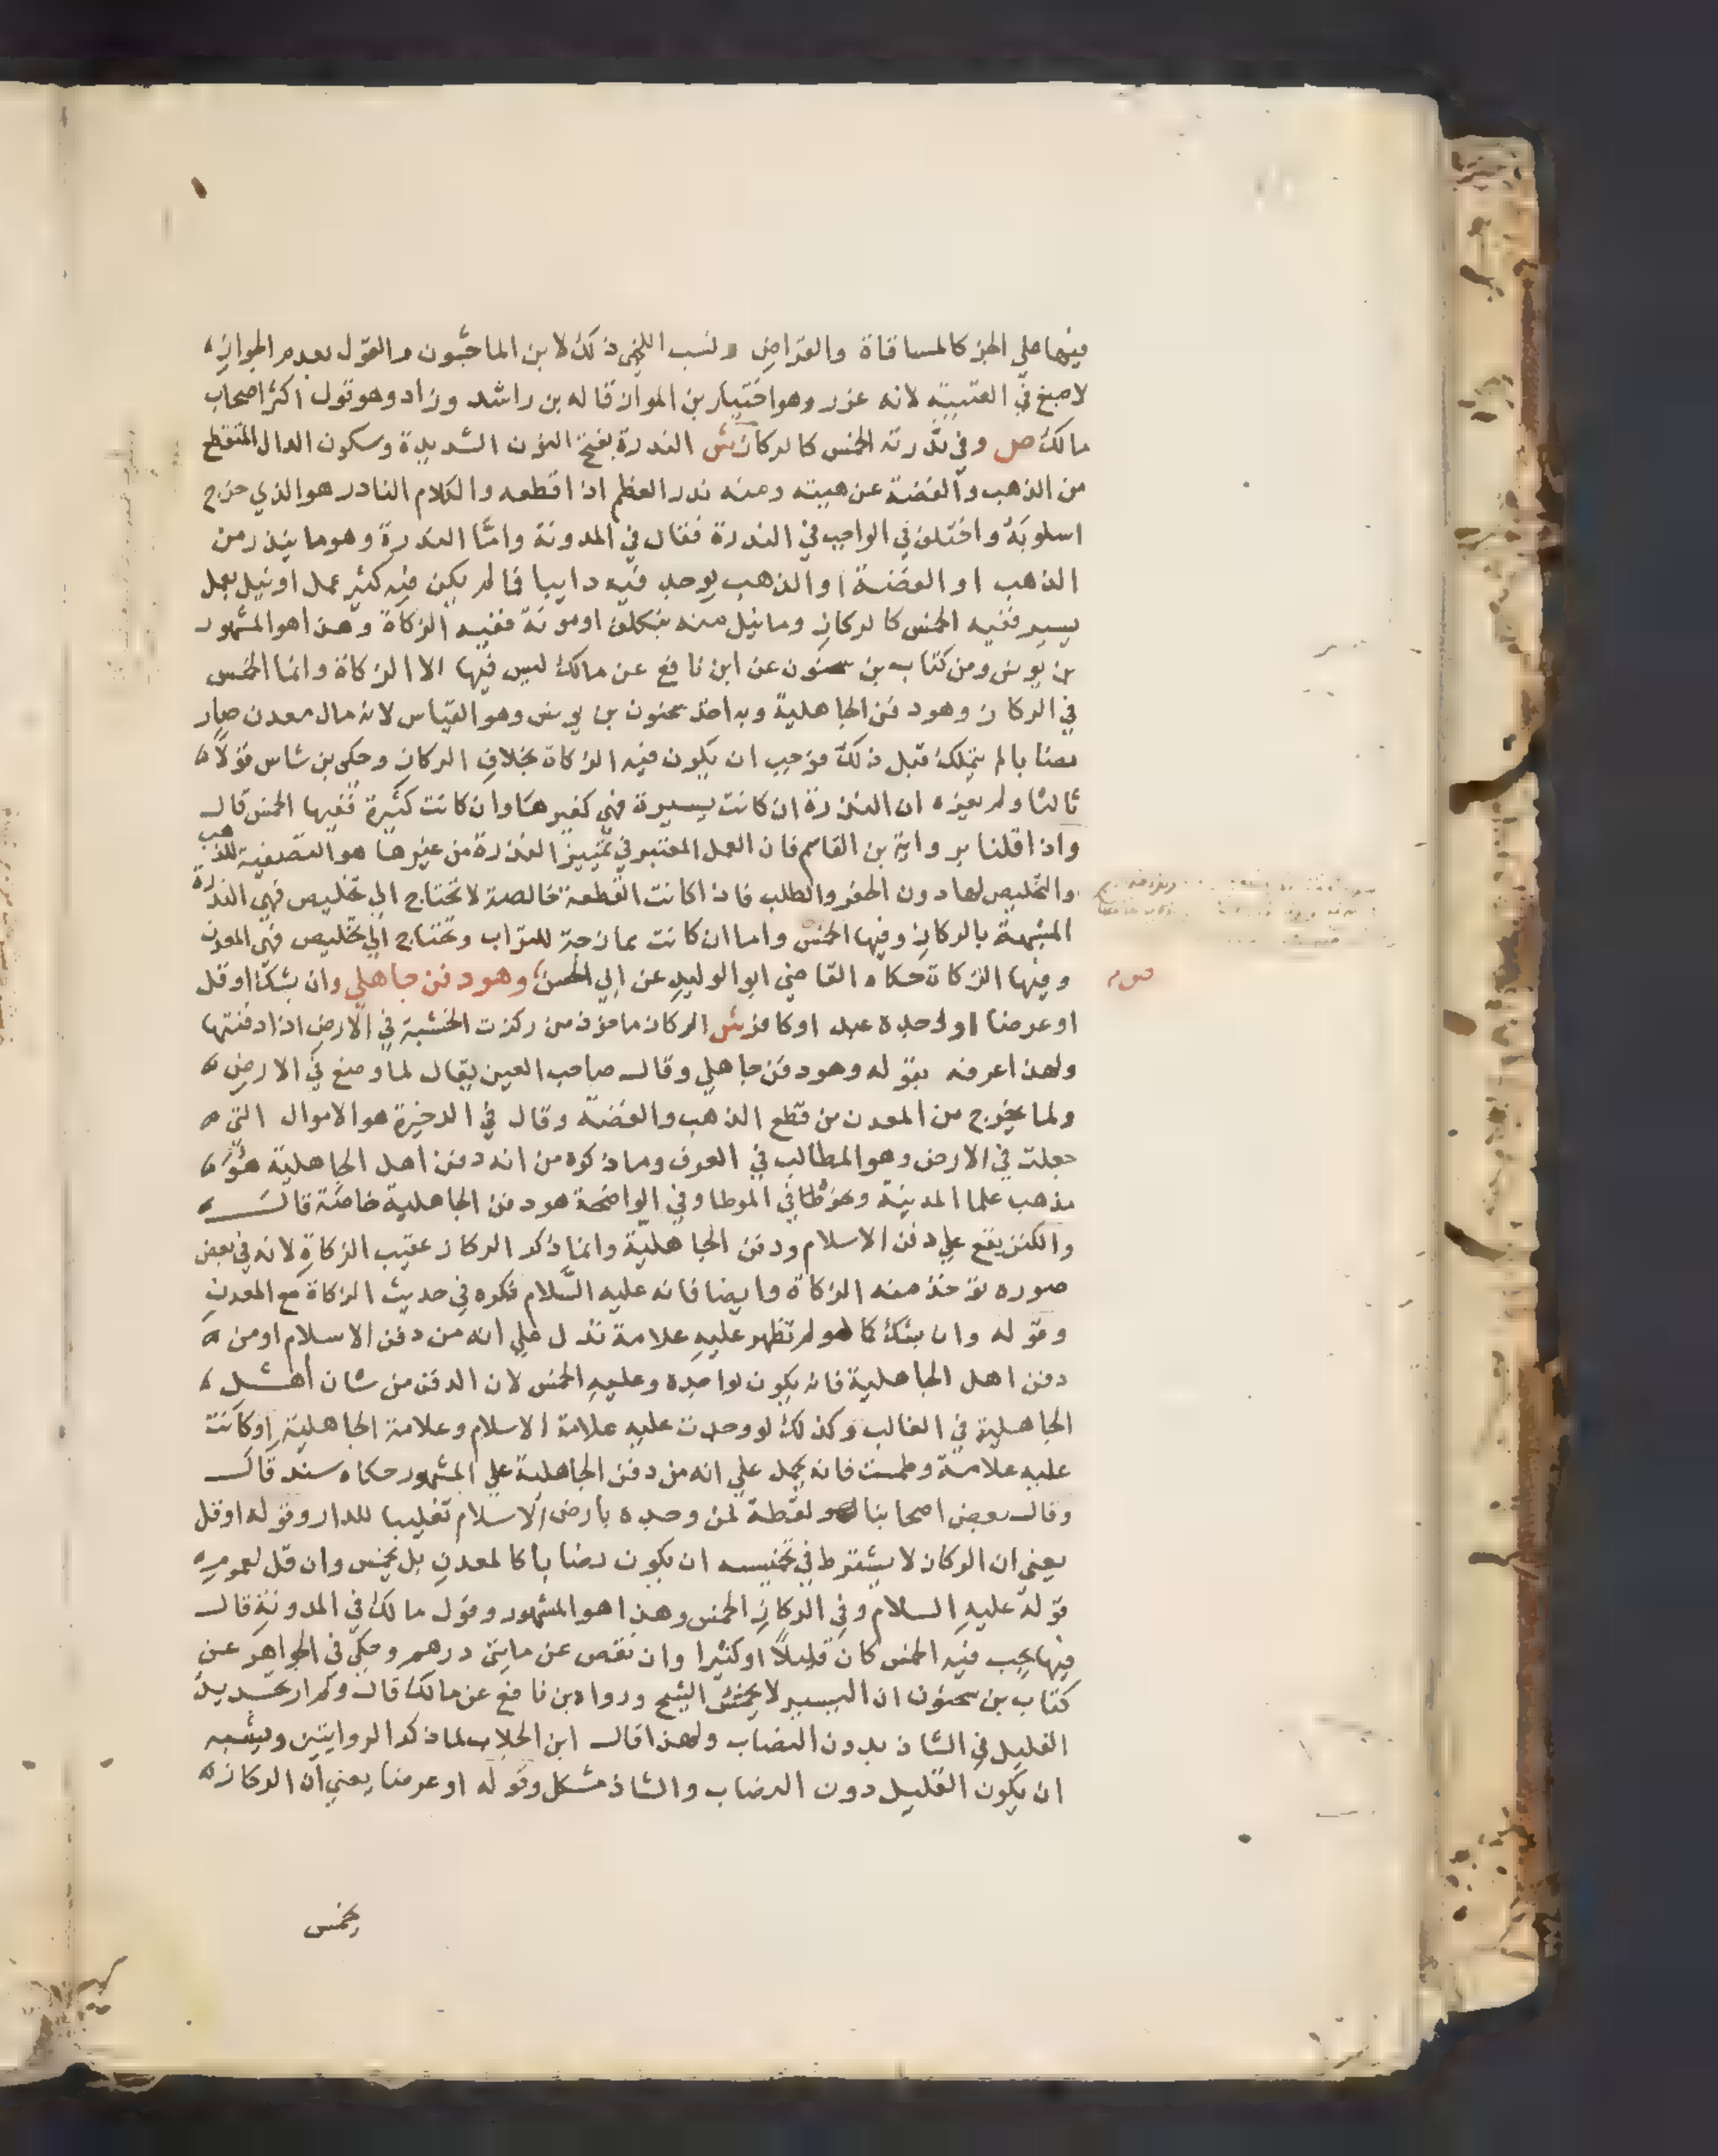 فيها علي الجز كالمساقاة والقراض ونسب اللخمي ذلك لابن الماجشون والقول بعدم الجواز
لاصبغ في العتبية لانه غرر وهو اختيار بن المواز قاله بن راشد وزاد وهو قول اكثر اصحاب
مالك ص وفي ندرته الخمس كالركاز ش الندرة بفتح النون الشديدة وسكون الدال المنقطع
من الذهب والفضة عن هيته ومنه ندر العظم اذا قطعه والكلام النادر هو الذي خرج
اسلوبه واختلف في الواجب في الندرة فقال في المدونة وامّا الندرة وهو ما يندر من
الذهب او الفضة او الذهب يوجد فيه دابيا فما لم يكن فيه كثير عمل او نيل بعمل
يسير ففيه الخمس كالركاز وما نيل منه بتكلف او مونة ففيه الزكاة وهذا هو المشهور
بن يونس ومن كتاب بن سحنون عن ابن نافع عن مالك ليس فيها الا الزكاة وانما الخمس
في الركاز وهو دفن الجاهلية وبه اخذ سحنون بن يونس وهو القياس لانه مال معدن صار
نصابا لم يتملك قبل ذلك فوجب ان يكون فيه الزكاة بخلاف الركاز وحكى بن شاس قولاً
ثالثا ولم يعزه ان الندرة ان كانت يسيرة فهي كغيرها وان كانت كثيرة ففيها الخمس قال
واذا قلنا برواية بن القاسم فان العمل المعتبر في تمييز الندرة من غيرها هو التصفية للذهب
والتخليص لها دون الحفر والطلب فاذا كانت القطعة خالصة لا تحتاج الي تخليص فهي الندرة
المشبهة بالركاز وفيها الخمس واما ان كانت ممازجة للتراب وتحتاج الي تخليص فهي المعدن
وفيها الزكاة حكاه القاضي ابو الوليد عن ابي الحسن وهو دفن جاهلي وان بشك او قل
او عرضا او وجده عبد او كافر ش الركاز ماخوذ من ركزت الخشبة في الارض اذا دفنتها
ولهذا عرفه بقوله وهو دفن جاهلي وقال صاحب العين يقال لما وضع في الارض
ولما يخرج من المعدن من قطع الذهب والفضة وقال في الدخيرة هو الاموال التي
جعلت في الارض وهو المطالب في العرف وما ذكره من انه دفن اهل الجاهلية هو
مذهب علما المدينة ونحوه في الموطا وفي الواضحة هو دفن الجاهلية خاصّة قال
والكنز يقع علي دفن الاسلام ودفن الجاهلية وانما ذكر الركاز عقيب الزكاة لانه في بعض
صوره توخذ منه الزكاة وايضا فانه عليه السّلام ذكره في حديث الزكاة مع المعدن
وقوله وان بشك كما لو لم تظهر عليه علامة تدل علي انه من دفن الاسلام او من
دفن اهل الجاهلية فانه يكون لواجده وعليه الخمس لان الدفن من شان اهل
الجاهلية في الغالب وكذلك لو وجدت عليه علامة الاسلام وعلامة الجاهلية او كانت
عليه علامة وطمست فانه يحمل علي انه من دفن الجاهلية علي المشهور حكاه سند قال
وقال بعض اصحابنا هو لقطة لمن وجده بارض الاسلام تغليبا للدار وقوله او قل
يعني ان الركاز لا يشترط في تخميسه ان يكون نصابا كالمعدن بل يخمس وان قل لعموم
قوله عليه السلام وفي الركاز الخمس وهذا هو المشهور وقول مالك في المدونة قال
فيها يجب فيه الخمس كان قليلاً او كثيرا وان نقص عن مايتي درهم وحكي في الجواهر عن
كتاب بن سحنون ان اليسير لا يخمس الشيخ ورواه بن نافع عن مالك قال ولم ار تحديد
القليل في الشاذ بدون النصاب ولهذا قال ابن الجلاب لما ذكر الروايتين ويشبه
ان يكون القليل دون النصاب والشاذ مشكل وقوله او عرضا يعني ان الركاز
يخمس